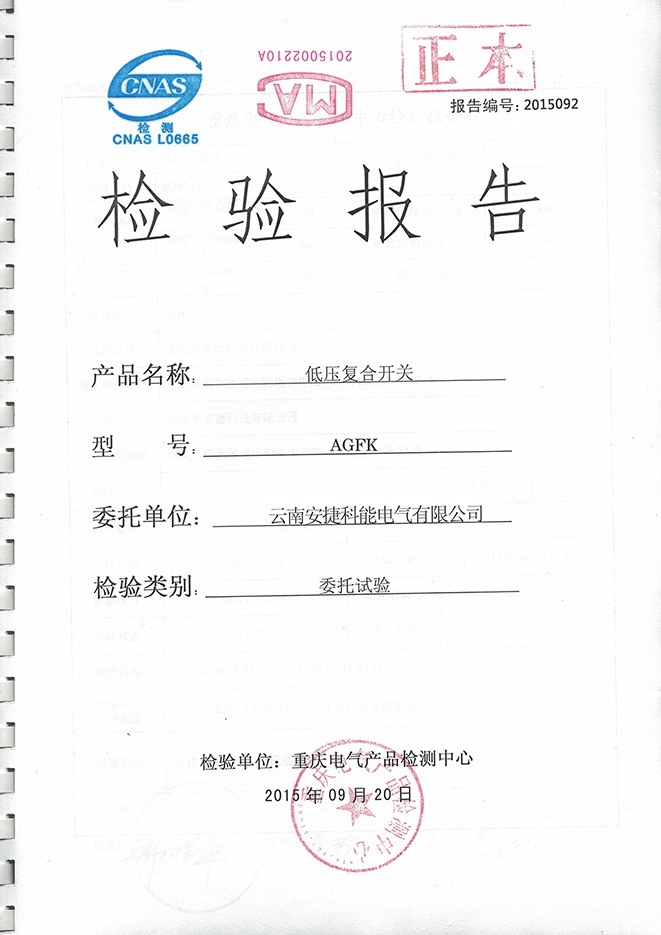 CNAS
检 测
CNAS L0665
2015002210A
MA
正本
报告编号：2015092
检验报告
产品名称：低压复合开关
型 号：AGFK
委托单位：云南安捷科能电气有限公司
检验类别：委托试验
检验单位：重庆电气产品检测中心
2015 年 09 月 20 日
重庆电气产品检测中心